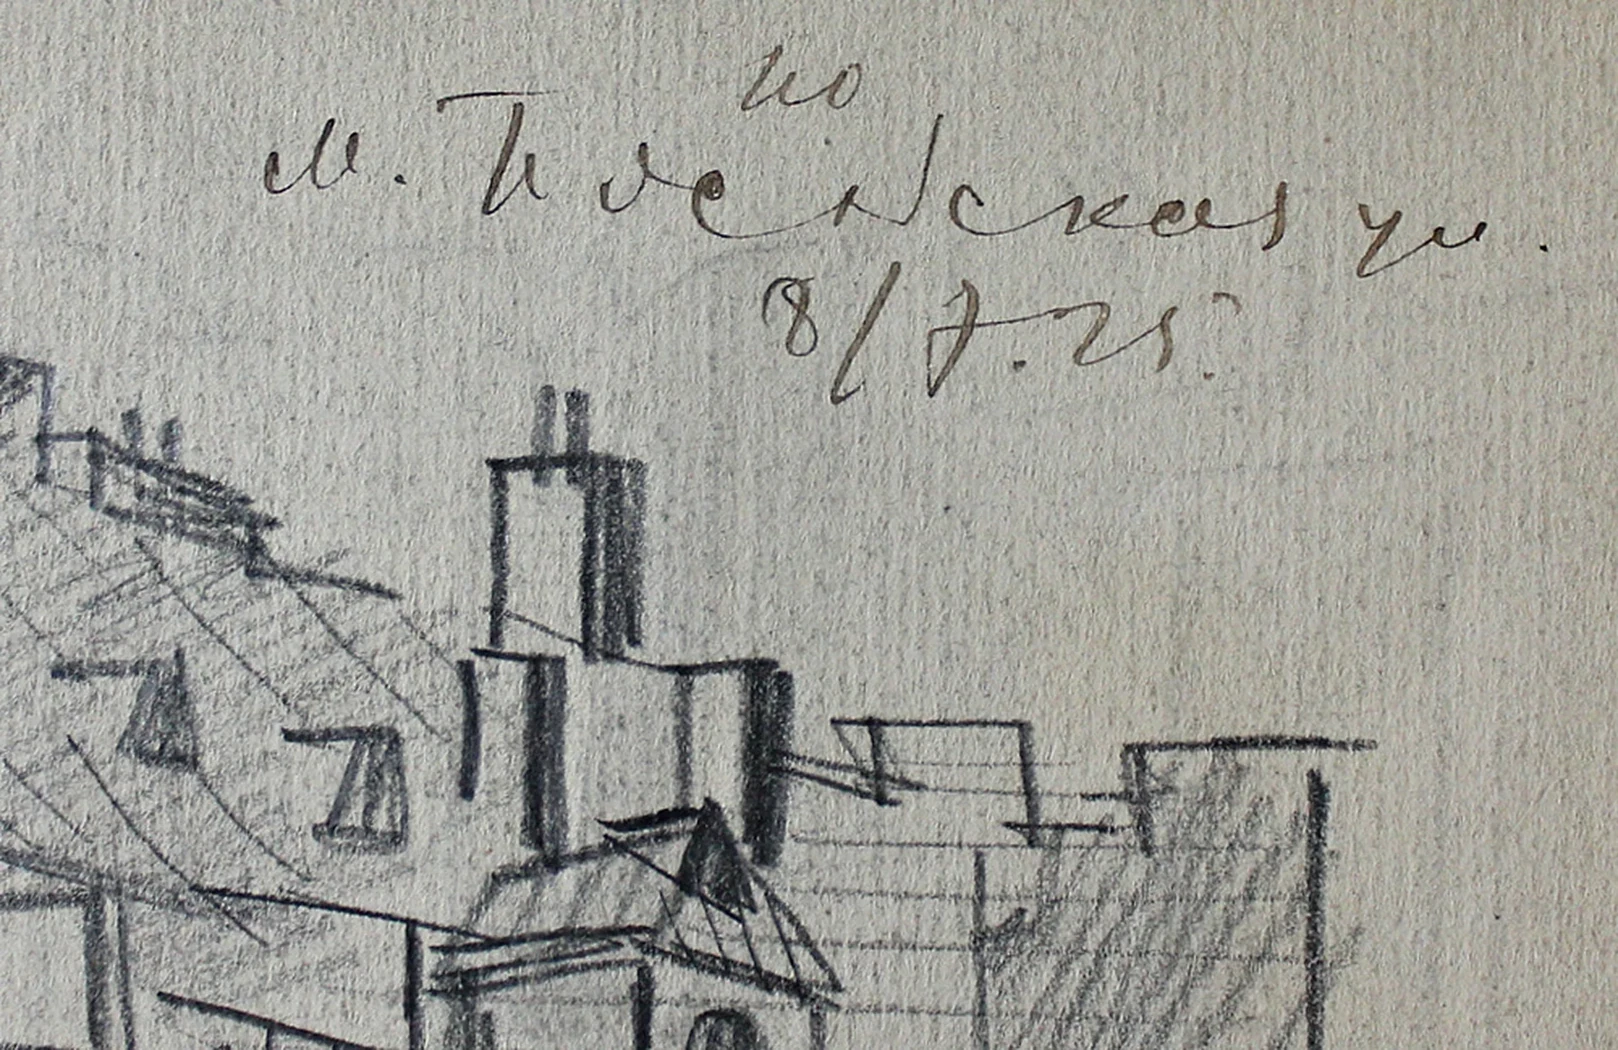 по
М. Посадская ул.
8/7.25.